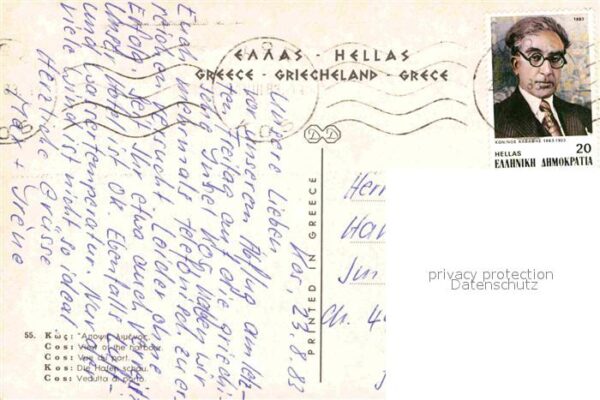 ΕΛΛΑΣ - HELLAS
GREECE - GRIECHELAND - GRECE
1983
ΚΩΝ/ΝΟΣ ΚΑΒΑΦΗΣ 1863-1933
HELLAS 20
ΕΛΛΗΝΙΚΗ ΔΗΜΟΚΡΑΤΙΑ
Kos, 23.8.83
Unsere Lieben
Vor unserem Abflug am letz-
ten Freitag auf die griechi-
sche Insel Kos, haben wir
Euch mehrmals telefonisch zu er-
reichen versucht. Leider ohne
Erfolg. Seid Ihr etwa auch verreist?
Unser Hotel ist OK. Ebenfalls Luft-
und Wassertemperatur. Nur der
viele Wind ist nicht so ideal.
Herzliche Grüsse
Max + Irène
PRINTED IN GREECE
CH. 4
privacy protection
Datenschutz
55. Κῶς: Ἄποψη λιμένος.
Cos: View of the harbour.
Cos: Vue du port.
Kos: Die Hafen schau.
Cos: Veduta di porto.